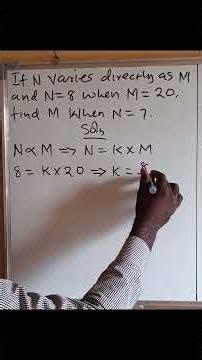 If N varies directly as M
and N=8 when M=20,
find M when N=7.
Soln
N∝M ⇒ N=K×M
8=K×20 ⇒ K=8